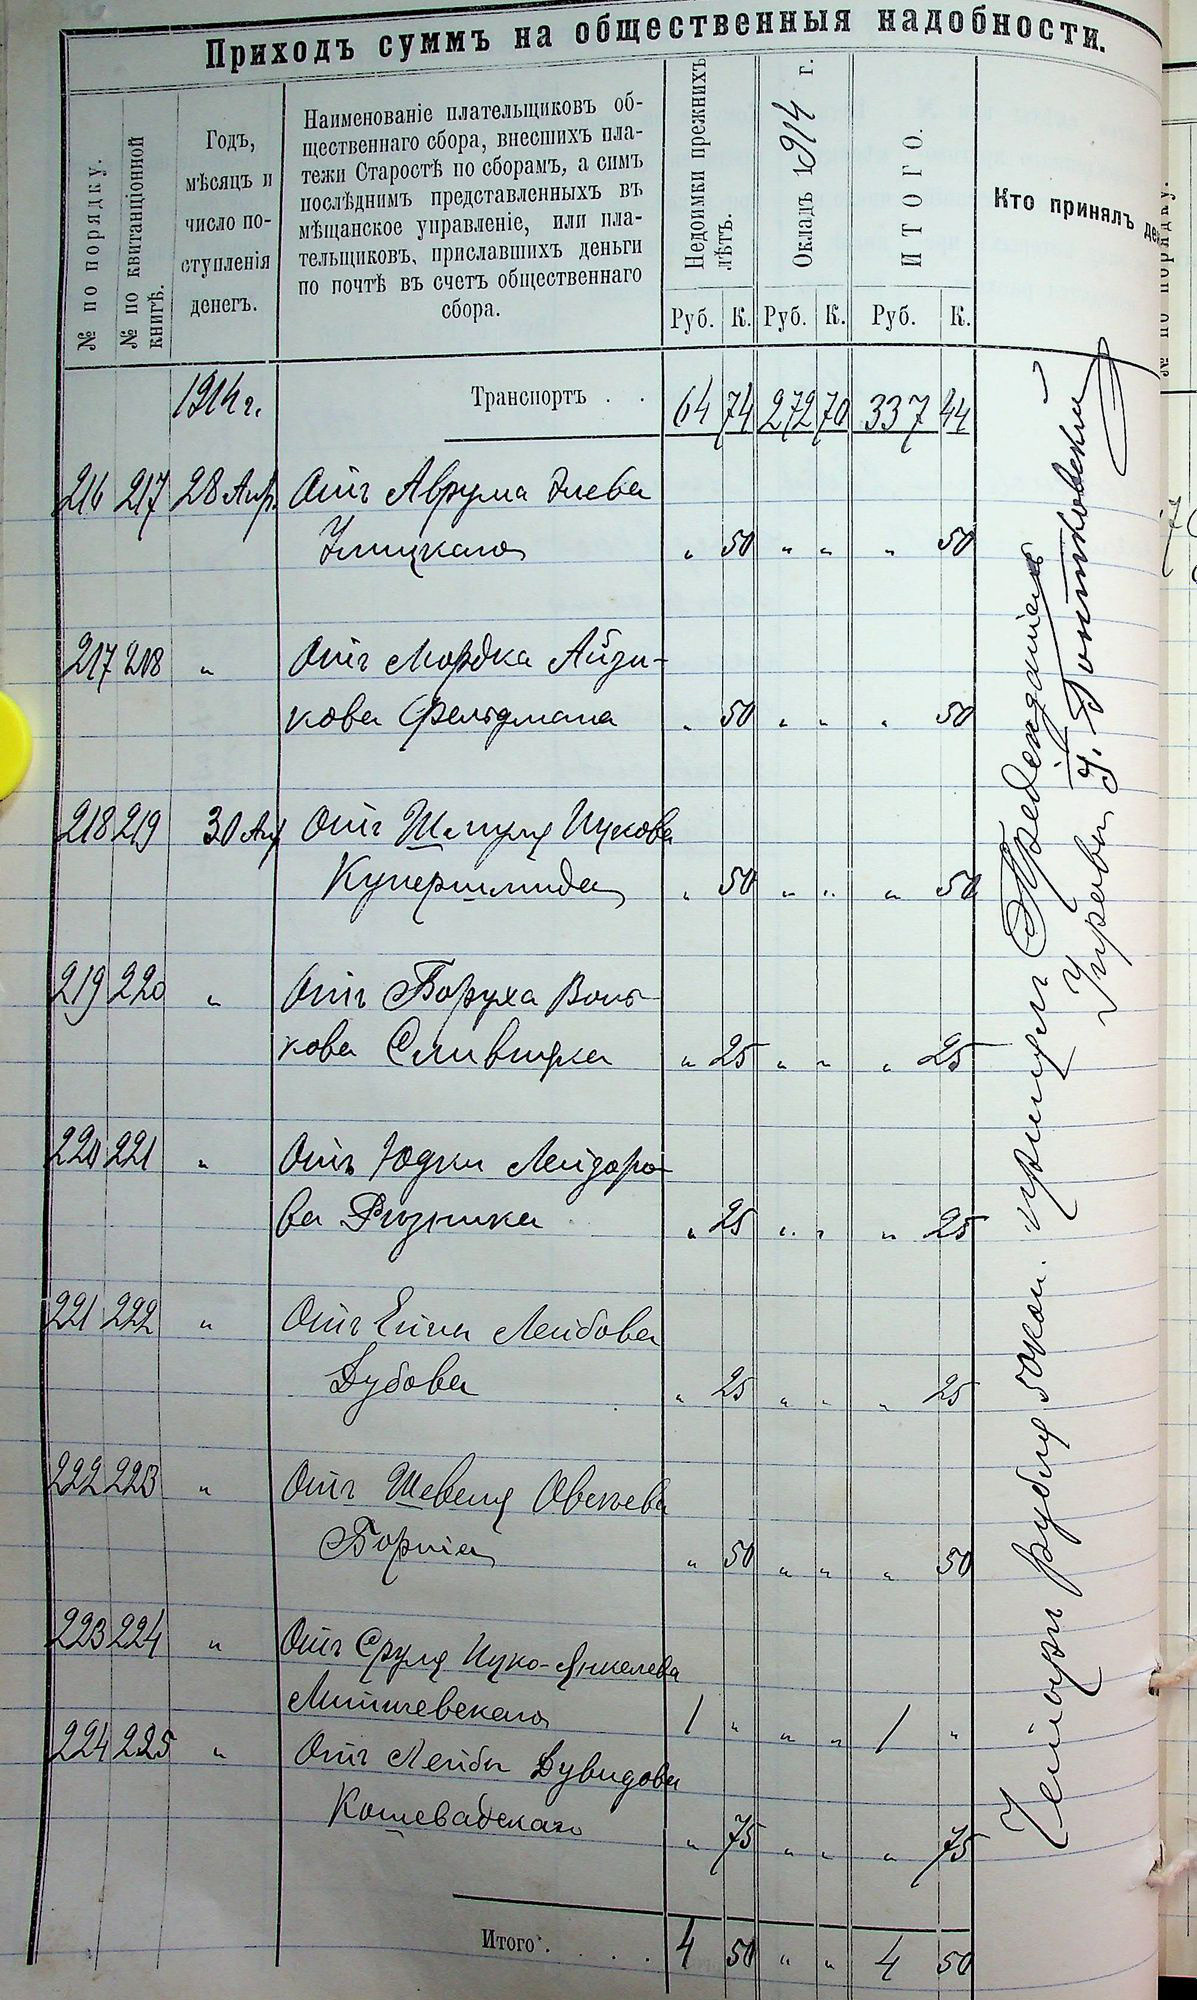 Приходъ суммъ на общественныя надобности.
№ по порядку.
№ по квитанціонной
книгѣ.
Годъ,
мѣсяцъ и
число по-
ступленія
денегъ.
Наименованіе плательщиковъ об-
щественнаго сбора, внесшихъ пла-
тежи Старостѣ по сборамъ, а симъ
послѣднимъ представленныхъ въ
мѣщанское управленіе, или пла-
тельщиковъ, приславшихъ деньги
по почтѣ въ счетъ общественнаго
сбора.
Недоимки прежнихъ
лѣтъ.
Окладъ 1914 г.
ИТОГО.
Кто принялъ
Руб. К. Руб. К. Руб. К.
1914 г. Транспортъ . . 64 74 272 70 337 44
216 217 28 Апр. Отъ Аврума
Улицкаго „ 50 „ „ „ 50
217 218 „ Отъ Мордка Айзи-
кова Фельдмана „ 50 „ „ „ 50
218 219 30 Апр Отъ Шмуля Ицкова
Купершмида „ 50 „ „ „ 50
219 220 „ Отъ Боруха Воль-
кова Сливняка „ 25 „ „ „ 25
220 221 „ Отъ Юдки Лейзоро-
ва Ризника „ 25 „ „ „ 25
221 222 „ Отъ Лейбова
Дубова „ 25 „ „ „ 25
222 223 „ Отъ Шевеля Овсеева
„ 50 „ „ „ 50
223 224 „ Отъ Сруля Ицко-Янкелева
Литичевскаго 1 „ „ „ 1 „
224 225 „ Отъ Лейбы Дувидова
Кошевадскаго „ 75 „ „ „ 75
Итого . . . . 4 50 „ „ 4 50
Четыре рубля 50 коп. принялъ Предсѣдатель
Управы